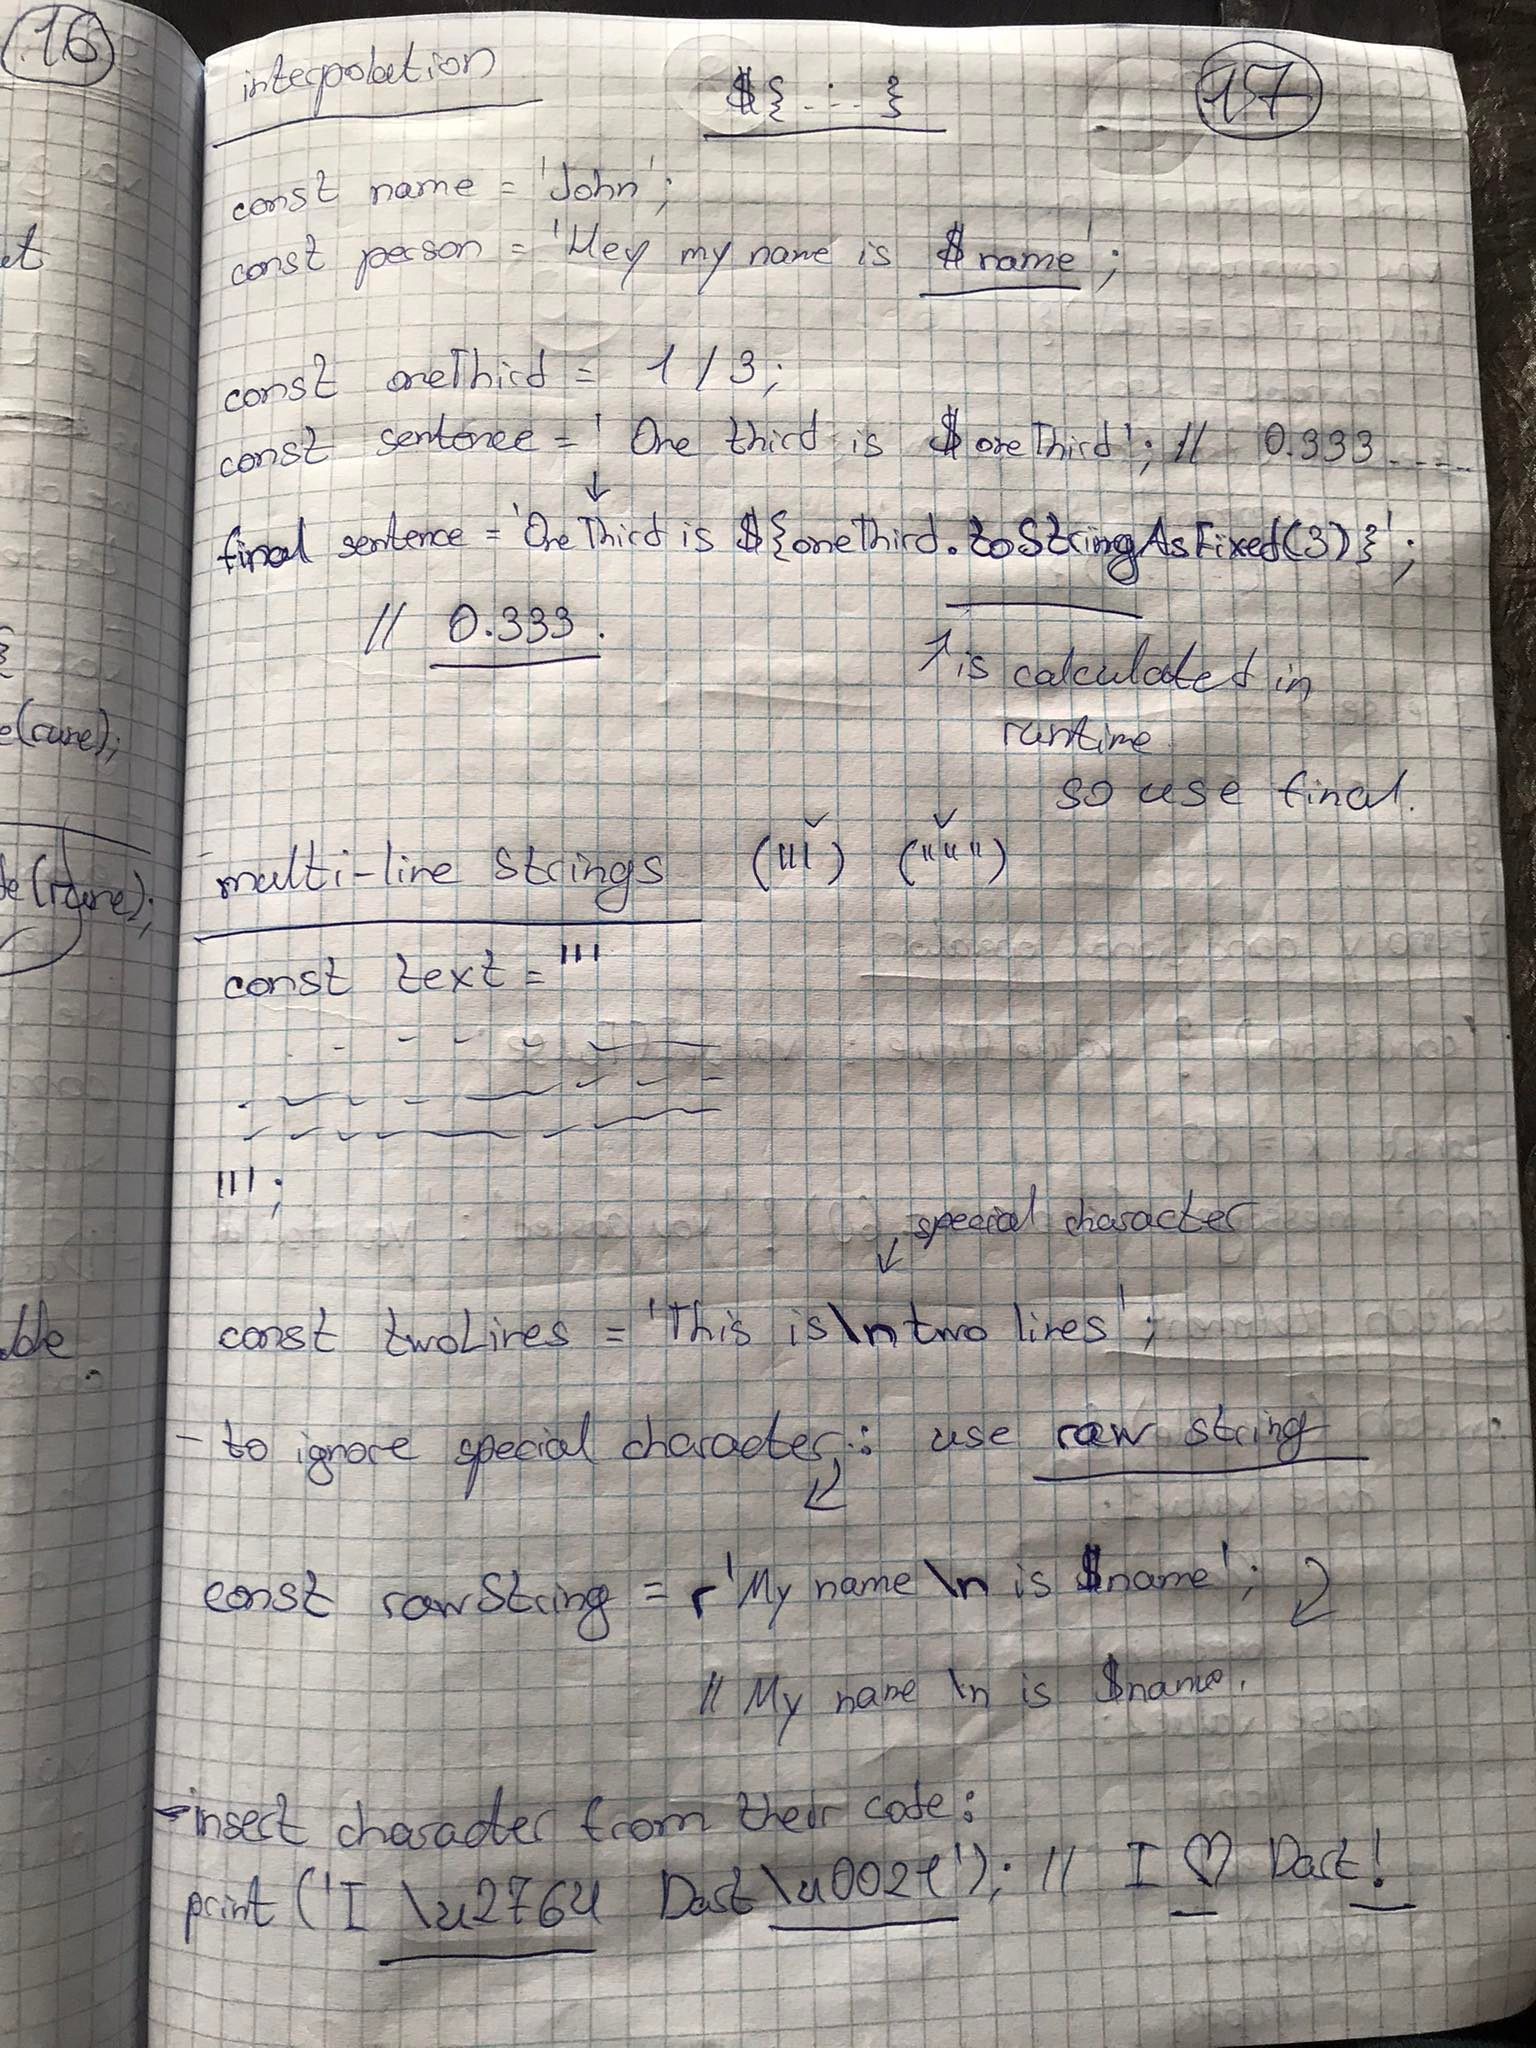 16
et
}
e(rune);
de(rune);
ble
interpolation ${...} 17
const name = 'John';
const person = 'Hey my name is $name';
const oneThird = 1/3;
const sentence = 'One third is $oneThird'; // 0.333.....
final sentence = 'One Third is ${oneThird.toStringAsFixed(3)}';
// 0.333.
is calculated in
runtime
so use final.
multi-line strings (''') (""")
const text = '''
''';
special character
const twoLines = 'This is\n two lines';
- to ignore special character: use raw string
const rawString = r'My name \n is $name';
// My name \n is $name.
- insert character from their code:
print ('I \u2764 Dart\u0021'); // I ♡ Dart!